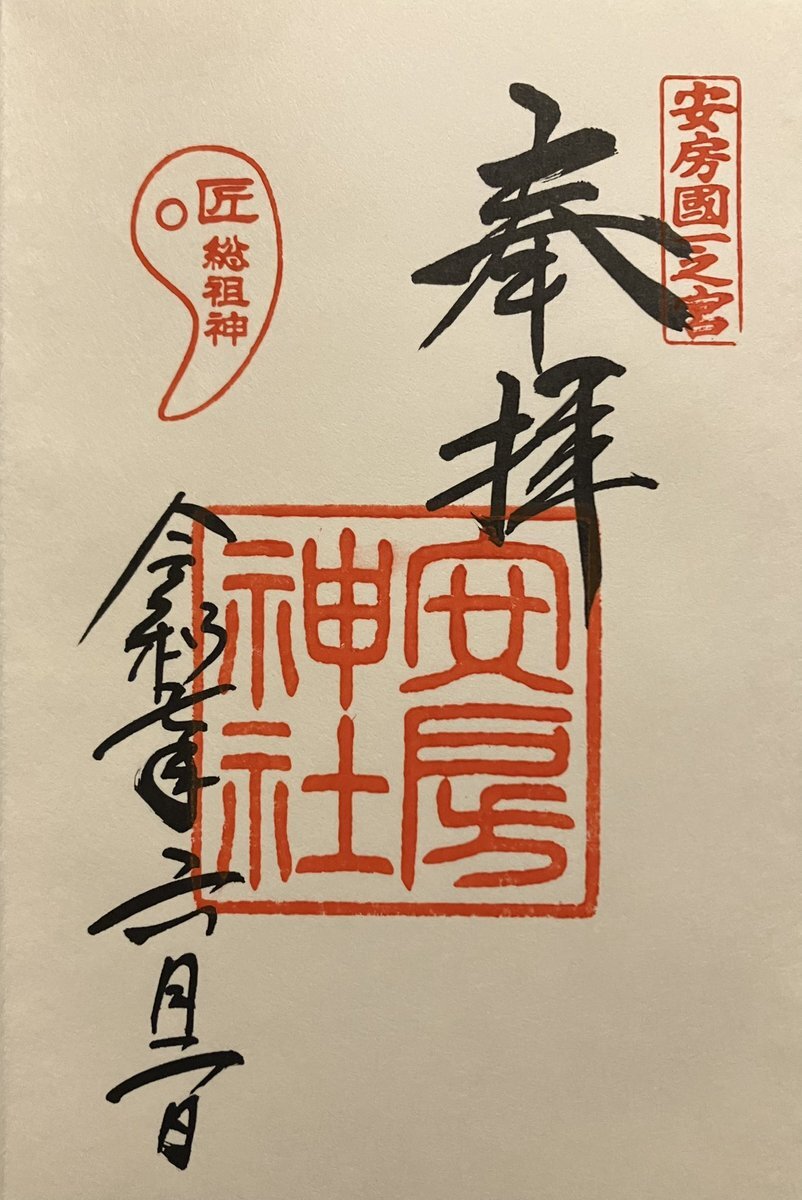 安房國一之宮
奉拝
安房
神社
匠
総祖神
令和七年六月二日